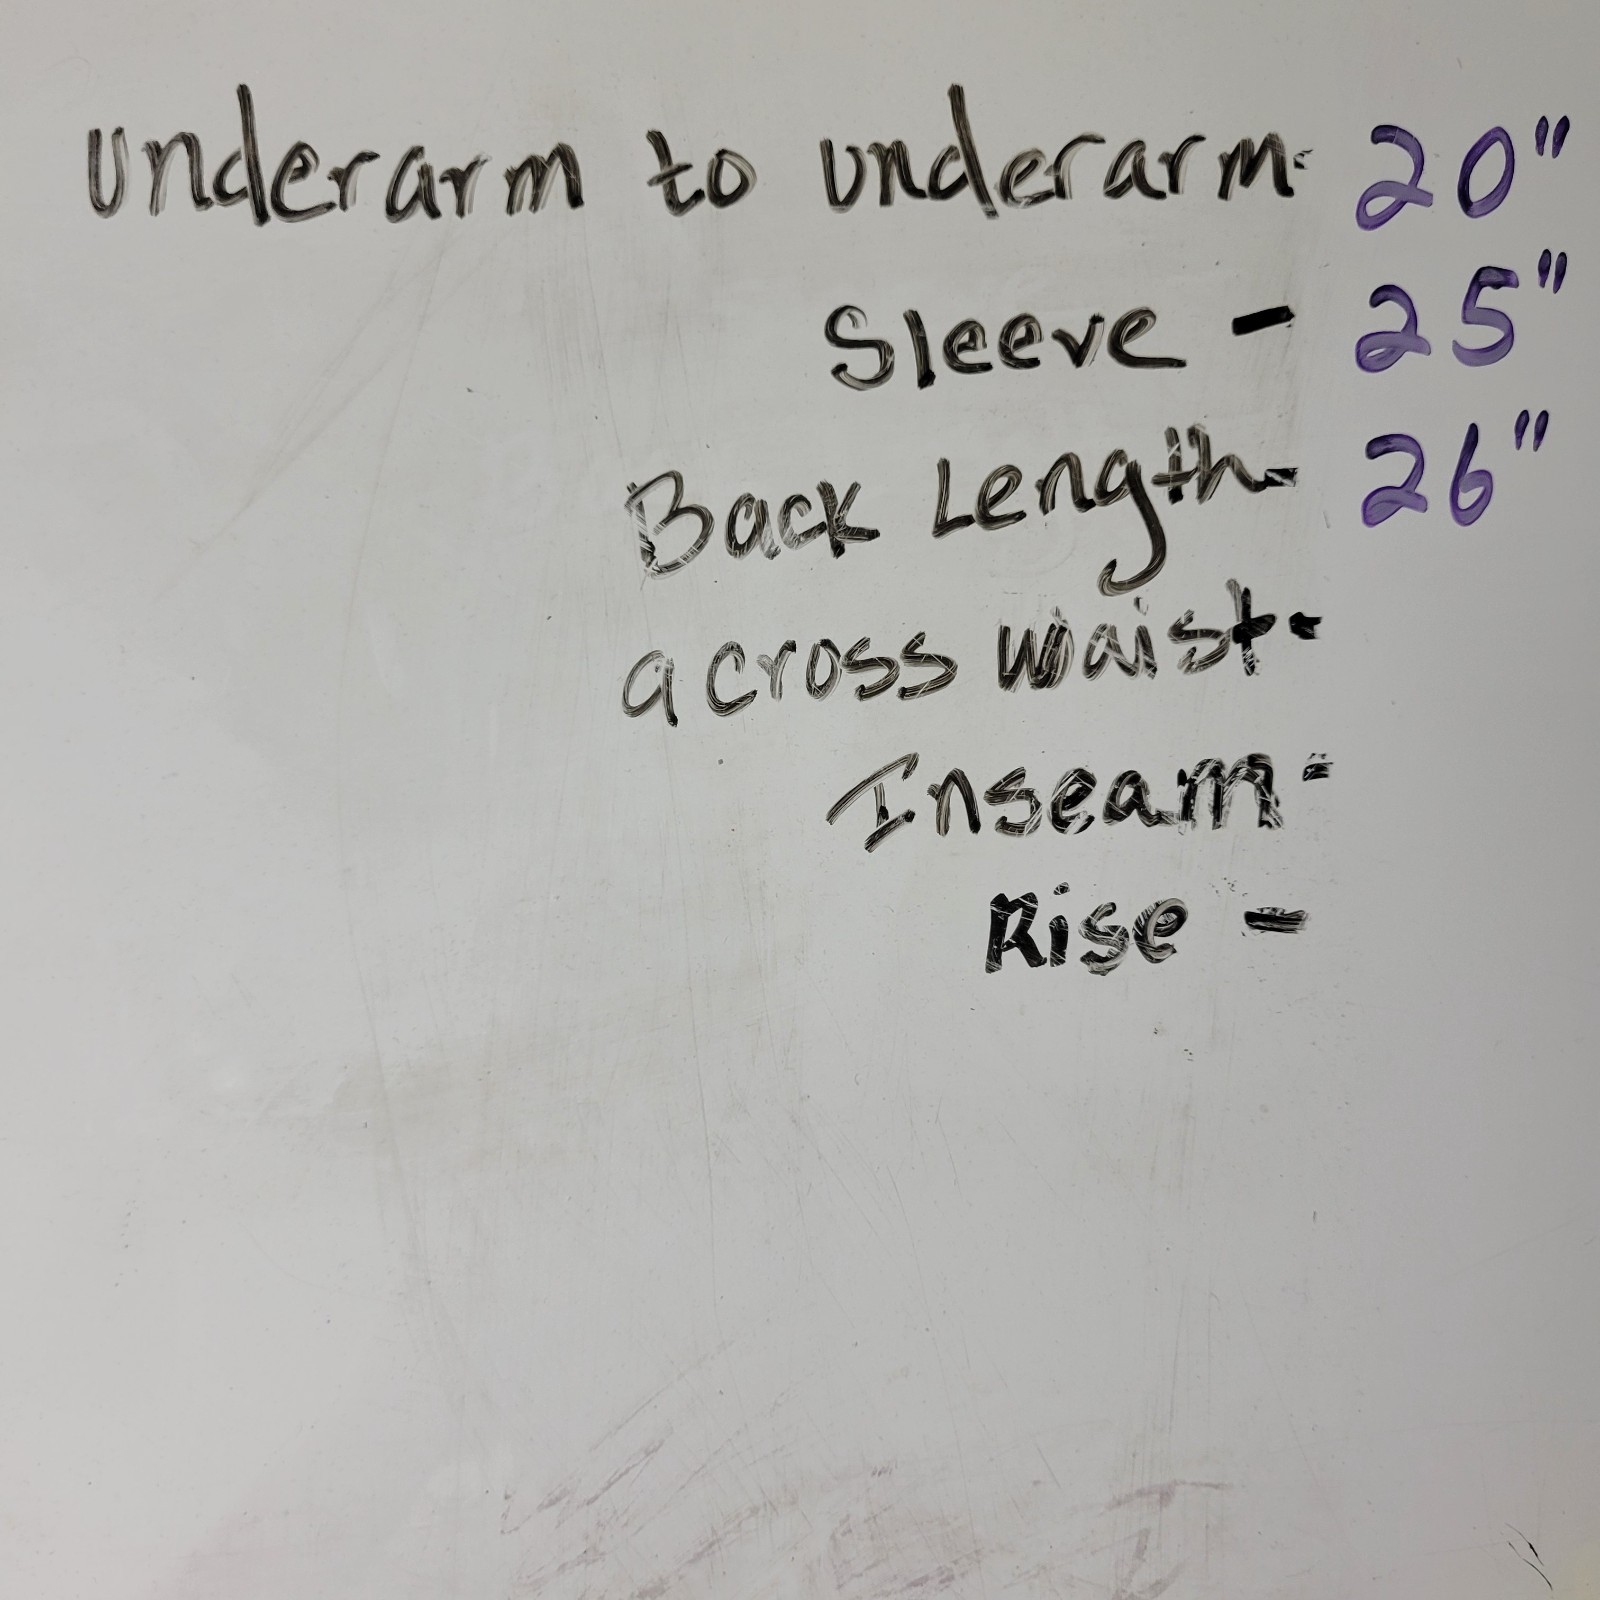 underarm to underarm- 20"
Sleeve - 25"
Back Length- 26"
across waist-
Inseam-
Rise -